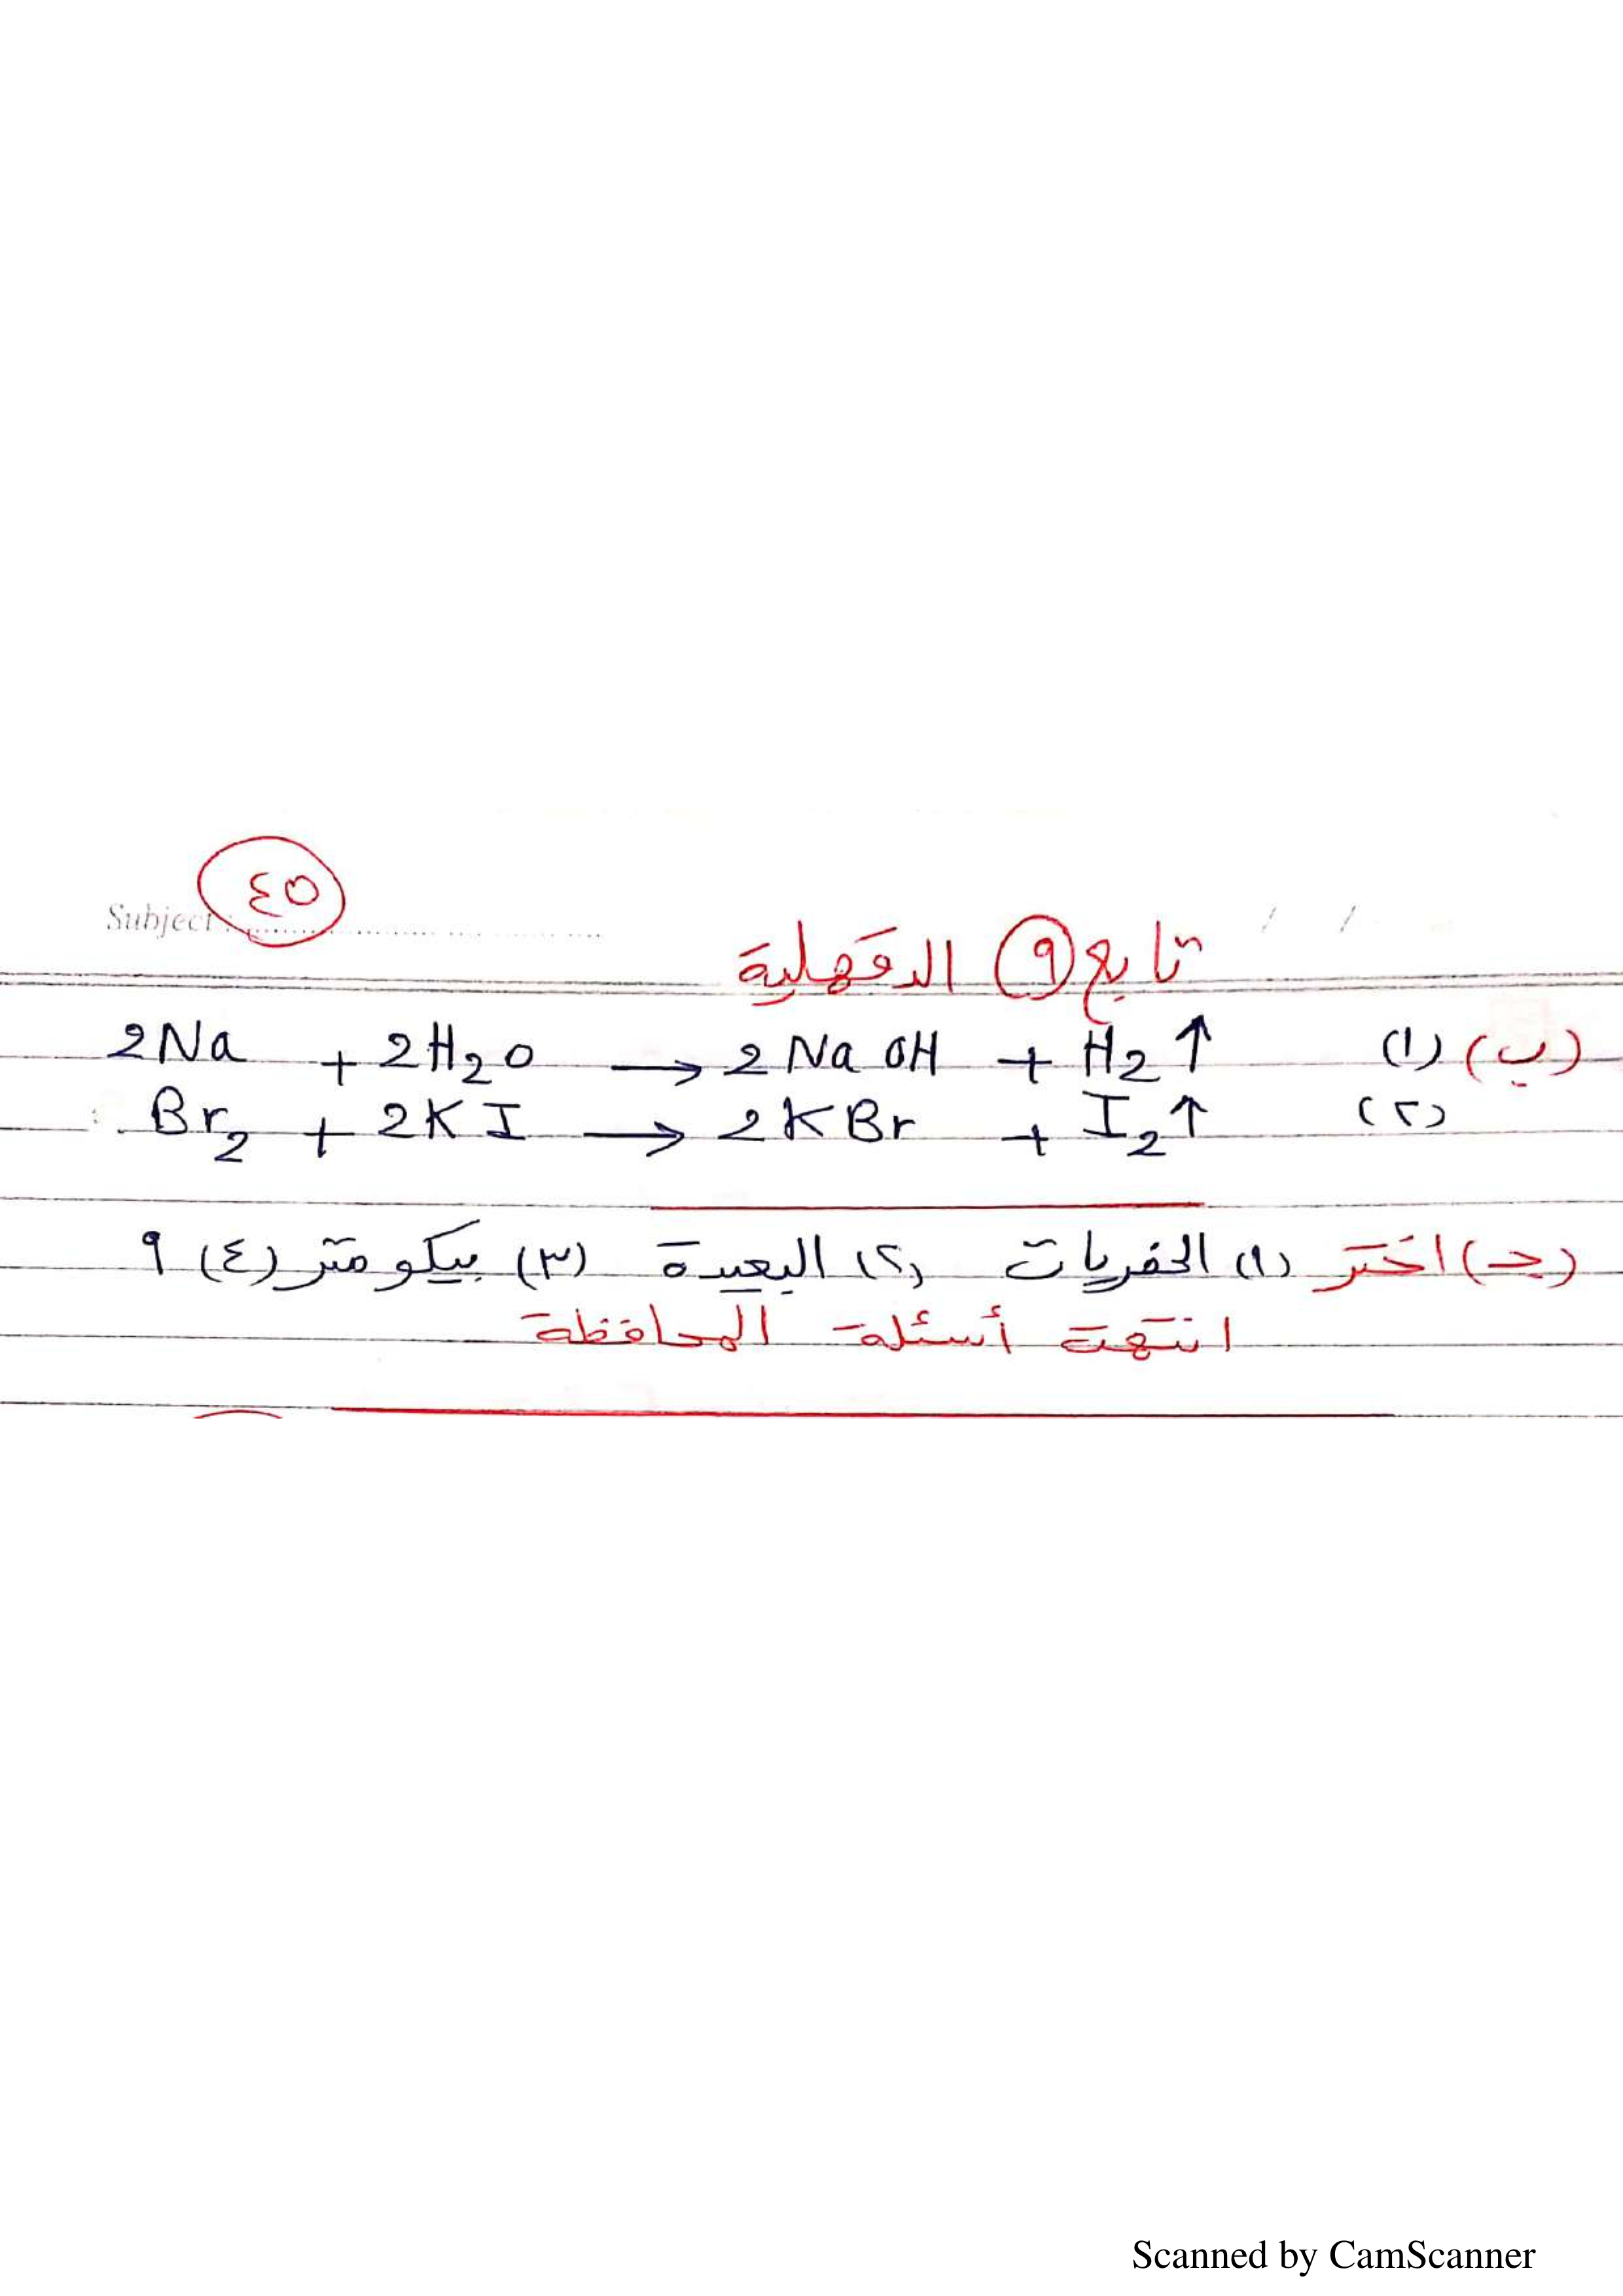 ٤٥
Subject :
/ /
تابع ٩ الدقهلية
(ب) (١) 2Na + 2H₂O → 2NaOH + H₂↑
(٢) Br₂ + 2KI → 2KBr + I₂↑
(جـ) اختر (١) الحفريات (٢) البعيدة (٣) بيكومتر (٤) ٩
انتهت أسئلة المحافظة
Scanned by CamScanner